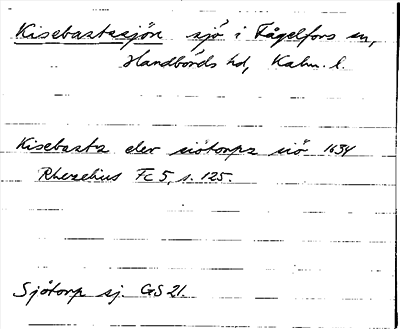 Kisebastasjön sjö i Fågelfors sn,
Handbörds hd, Kalm. l.
Kisebasta eler siötorps siö 1634
Rhezelius Fc 5, s. 125.
Sjötorp sj. GS 21.